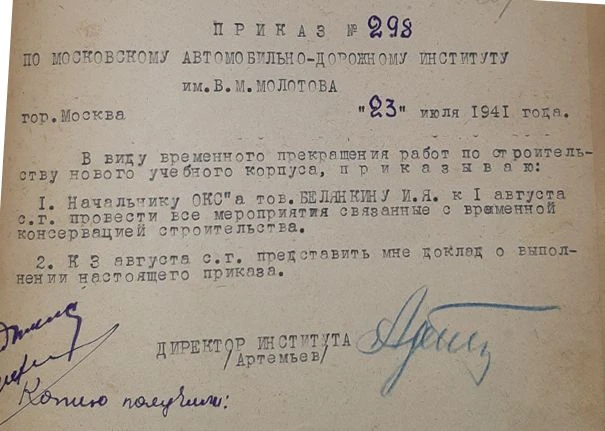 ПРИКАЗ № 298
ПО МОСКОВСКОМУ АВТОМОБИЛЬНО-ДОРОЖНОМУ ИНСТИТУТУ
им. В. М. МОЛОТОВА
гор. Москва "23" июля 1941 года.
В виду временного прекращения работ по строитель-
ству нового учебного корпуса, приказываю:
I. Начальнику ОКС"а тов. БЕЛЯНКИНУ И.Я. к I августа
с.г. провести все мероприятия связанные с временной
консервацией строительства.
2. К 3 августа с.г. представить мне доклад о выпол-
нении настоящего приказа.
ДИРЕКТОР ИНСТИТУТА
/Артемьев/
Копию получили: